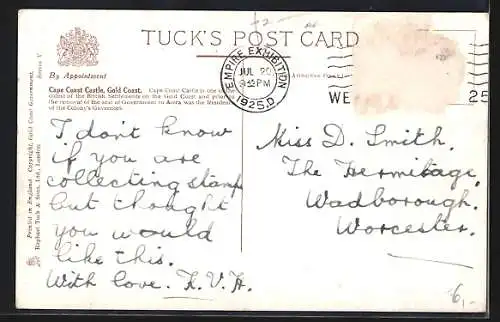 TUCK'S POST CARD
By Appointment
EMPIRE EXHIBITION
JUL 20
1925.D
WE
25
Cape Coast Castle, Gold Coast.
Cape Coast Castle is one of the
oldest of the British Settlements on the Gold Coast and
the removal of the seat of Government to Accra was the
of the Colony's Governors.
Printed in England. Copyright, Gold Coast Government.
Raphael Tuck & Sons, Ltd., London.
Series V
I don't know
if you are
collecting stamps
but thought
you would
like this.
With love. K.V.H.
Miss D. Smith.
The Hermitage,
Wadborough.
Worcester.
6,-